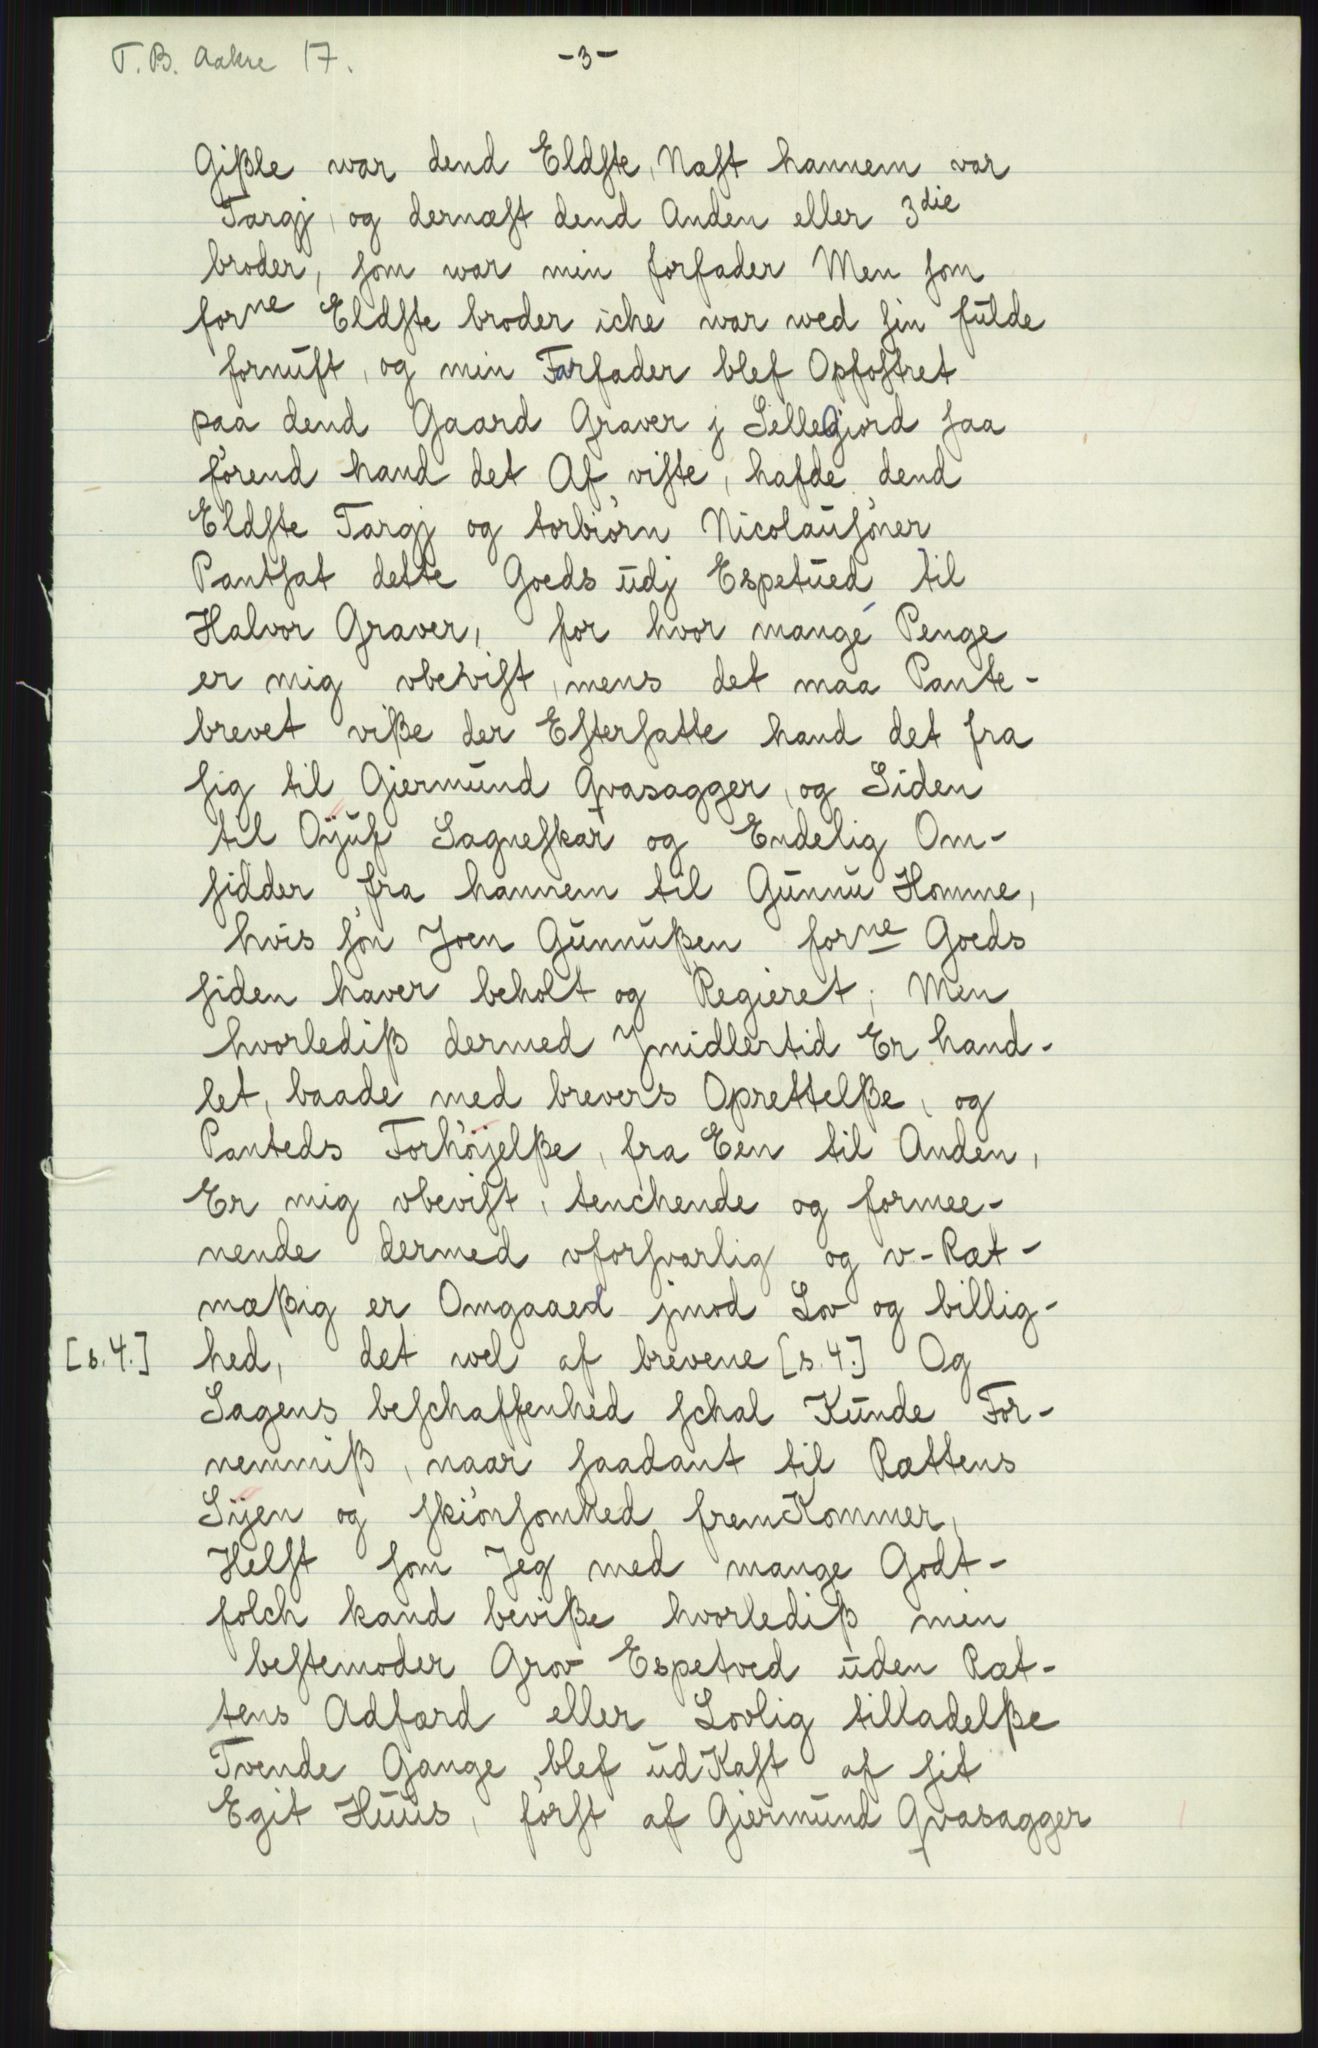 T. B. Aakre 17.
-3-
Gißle war dend Eldste, Næst hannem var
Targj, og dernæst dend Anden eller 3die
broder, som war min forfader Men som
forne Eldste broder iche war wed sin fulde
fornuft, og min Farfader blef Opfostret
paa dend Gaard Graver j Sellegiord saa
förend hand det Af viste, hafde dend
Eldste Targj og torbiörn Nicolausöner
Pantsat dette Goeds udj Espetued til
Halvor Graver, for hvor mange Penge
er mig vbevist, mens det maa Pante-
brevet viße der Efterfatte hand det fra
sig til Gjermund Qvasagger, og Siden
til Oÿuf Sagneskar og Endelig Om-
sidder fra hannem til Gunnu Homme,
hvis sön Joen Gunnußen forne Goeds
siden haver beholt og Regieret; Men
hvorlediß dermed Jmidlertid Er hand-
let, baade med brevers Oprettelße, og
Panteds Forhöjelße, fra Een til Anden,
Er mig vbevist, tenchende og formee-
nende dermed vforsvarlig og v-Ræt-
mæßig er Omgaaed jmod Lov og billig-
[s.4.] hed, det wel af brevene [s.4.] Og
Sagens beschaffenhed schal Kunde For-
nemmiß, naar saadant til Rættens
Sÿen og skiönsomhed fremKommer,
Helst som Jeg med mange Godt-
folch kand beviße hvorlediß min
bestemoder Grov Espetved uden Ræt-
tens Adfærd eller Lovlig tilladelße
Tvende Gange blef udKast af sit
Egit Huus, först af Giermund Qvasagger